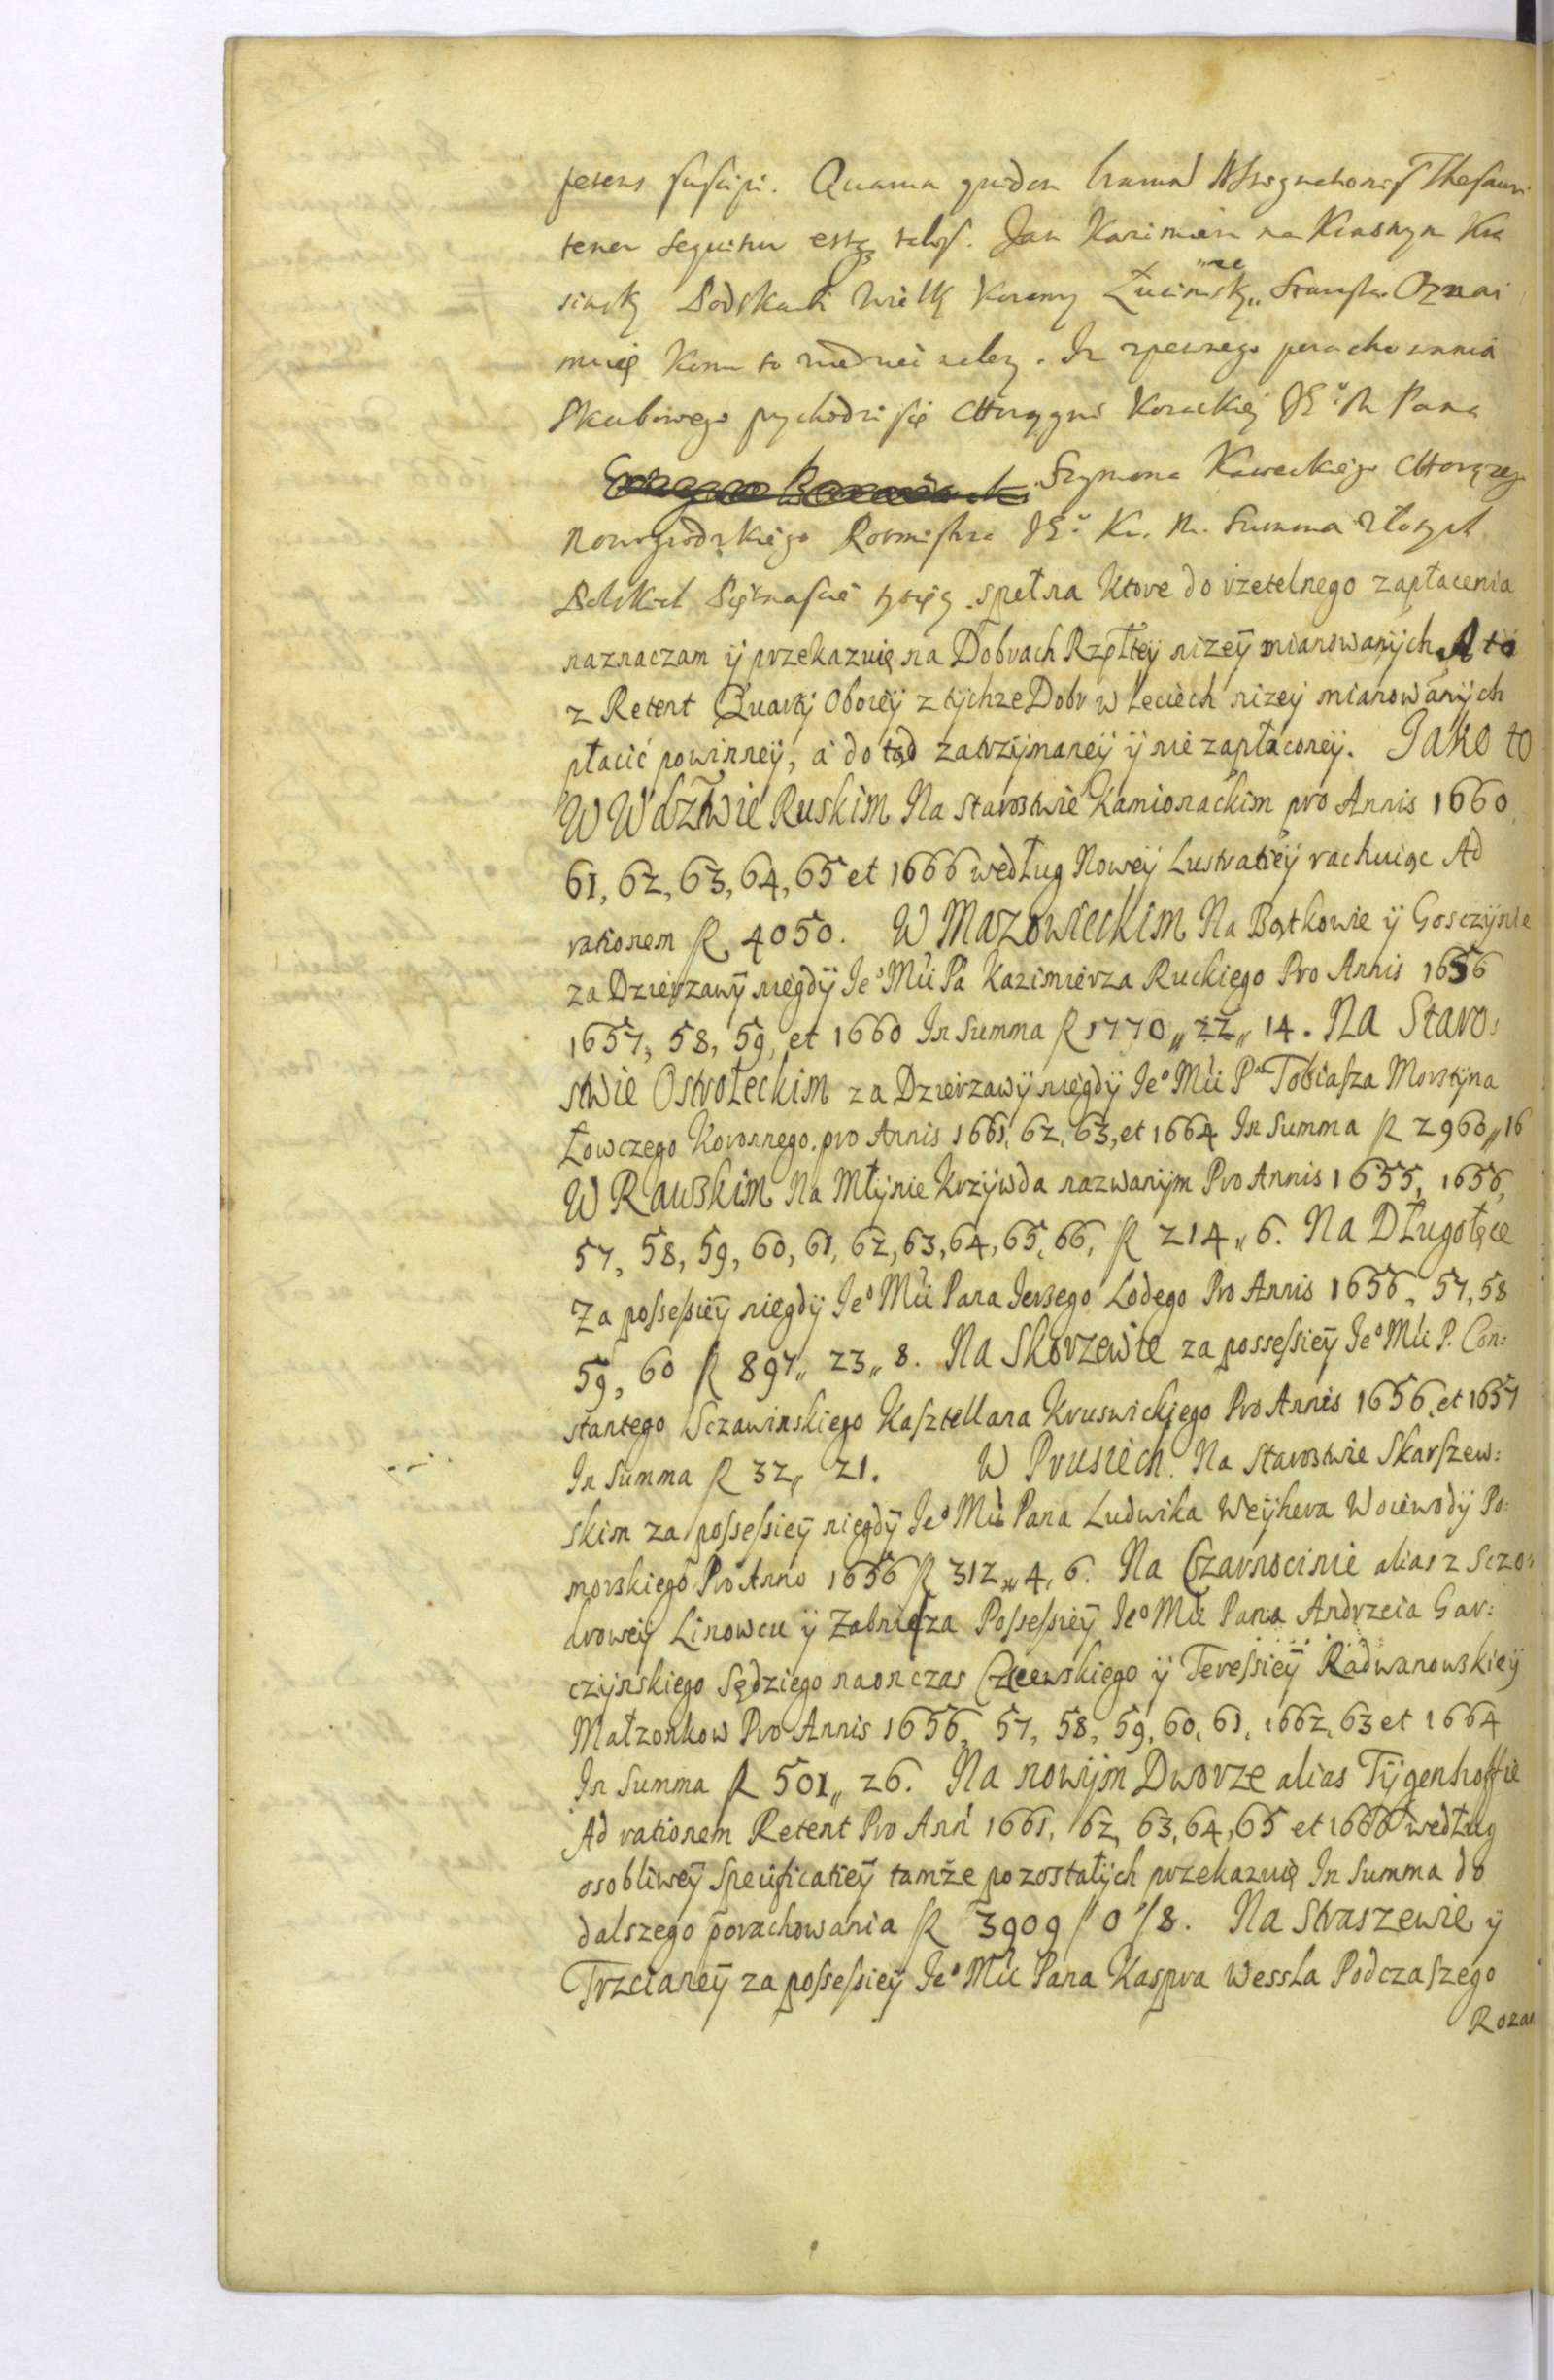 petens suscipi. Quarum quidem litterarum Assignationis Thesauri
tenor sequitur estq3 talis. Jan Kazimierz na Krasnym Kra
sinsky Podskarbi Wielky Koronny Łucinsky Starosta. Oznai
muię Komu to wiedzieć należy. Iz zpewnego porachowania
Skarbowego przychodzi się Chorągwi Kozackiej JE° M Pana
Szymona Kaweckiego Chorążeg
Nowogrodzkiego Rotmistrza JE° Kr. M. Summa Złotych
Polskich Piętnascie tysięcy spełna Ktore do rzetelnego zapłacenia
naznaczam ÿ przekazuię na Dobrach Rzpltey nizeÿ mianowanÿch A to
z Retent Quarty Oboieÿ z tÿchze Dobr w Leciech nizey mianowanÿch
płacić powinneÿ, a do tąd zatrzÿmaneÿ ÿ nie zapłaconeÿ. Jako to
W Wdztwie Ruskim Na Starostwie Kamionackim pro Annis 1660
61, 62, 63, 64, 65 et 1666 według Noweÿ Lustratieÿ rachuiąc Ad
rationem R 4050. W Mazowieckim Na Bątkowie ÿ Gosczÿnie
za Dzierzawÿ niegdÿ Je° Mci Pa Kazimierza Ruckiego Pro Annis 1656
1657, 58, 59, et 1660 In Summa R 1770 „ 22 „ 14. Na Staro:
stwie Ostrołeckim za Dzierzawÿ niegdÿ Je° Mci Pa Tobiasza Morstÿna
Łowczego Koronnego. pro Annis 1661, 62, 63, et 1664 In Summa R 2960 „ 16
W Rawskim Na Młÿnie Krzÿwda nazwanÿm Pro Annis 1655, 1656,
57, 58, 59, 60, 61, 62, 63, 64, 65, 66, R 214 „ 6. Na Długołęce
Za possessieÿ niegdÿ Je° Mci Pana Jerzego Lodego Pro Annis 1656, 57, 58
59, 60 R 897 „ 23 „ 8. Na Skorzewie za possessieÿ Je° Mci P. Con:
stantego Sczawinskiego Kasztellana Kruswickiego Pro Annis 1656, et 1657
In Summa R 32 „ 21. W Prusiech. Na Starostwie Skarszew:
skim za possessieÿ niegdÿ Je° Mci Pana Ludwika Weÿhera Woiewodÿ Po:
morskiego Pro Anno 1656 R 312 „ 4, 6. Na Czarnocinie alias z Sczo:
droweÿ Linowcu ÿ Zabnie za Possessieÿ Je° Mci Pana Andrzeia Gar:
czÿnskiego Sędziego naonczas Czcewskiego ÿ Teressieÿ Radwanowskieÿ
Małzonkow Pro Annis 1656, 57, 58, 59, 60, 61, 1662, 63 et 1664
In Summa R 501 „ 26. Na nowÿm Dworze alias Tÿgenhoffie
Ad rationem Retent Pro Ann 1661, 62, 63, 64, 65 et 1666 według
osobliweÿ Specificatieÿ tamże pozostałÿch przekazuię In Summa do
dalszego porachowania R 3909 // 0 // 8. Na Straszewie ÿ
Trzcianeÿ za possessieÿ Je° Mci Pana Kaspra Wessla Podczaszego
Rozan